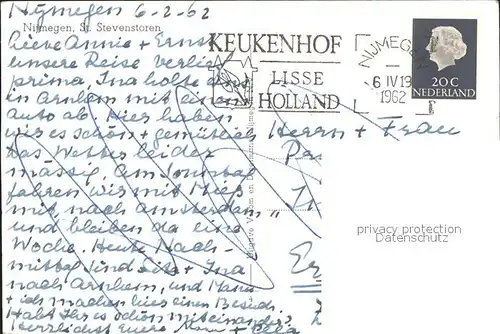 Nijmegen 6-2-62
Nijmegen, St. Stevenstoren
Lieve Annie + Ernst
unsere Reise verlief
prima. Ina holte uns
in Arnhem mit einem
Auto ab. Hier haben
wir es schön + gemütlich
das Wetter leider
mässig. Am Sonntag
fahren wir mit Miep
mit nach Amsterdam
und bleiben da eine
Woche. Heute Nach-
mittag sind Ina
nach Arnhem, und Mama
+ ich machen hier einen Besuch.
Habt Ihr es schön miteinander?
Herzlichst Euere Mama +
KEUKENHOF
LISSE
HOLLAND
NIJMEGEN
6 IV 19
1962
20 C
NEDERLAND
Herrn + Frau
privacy protection
Datenschutz